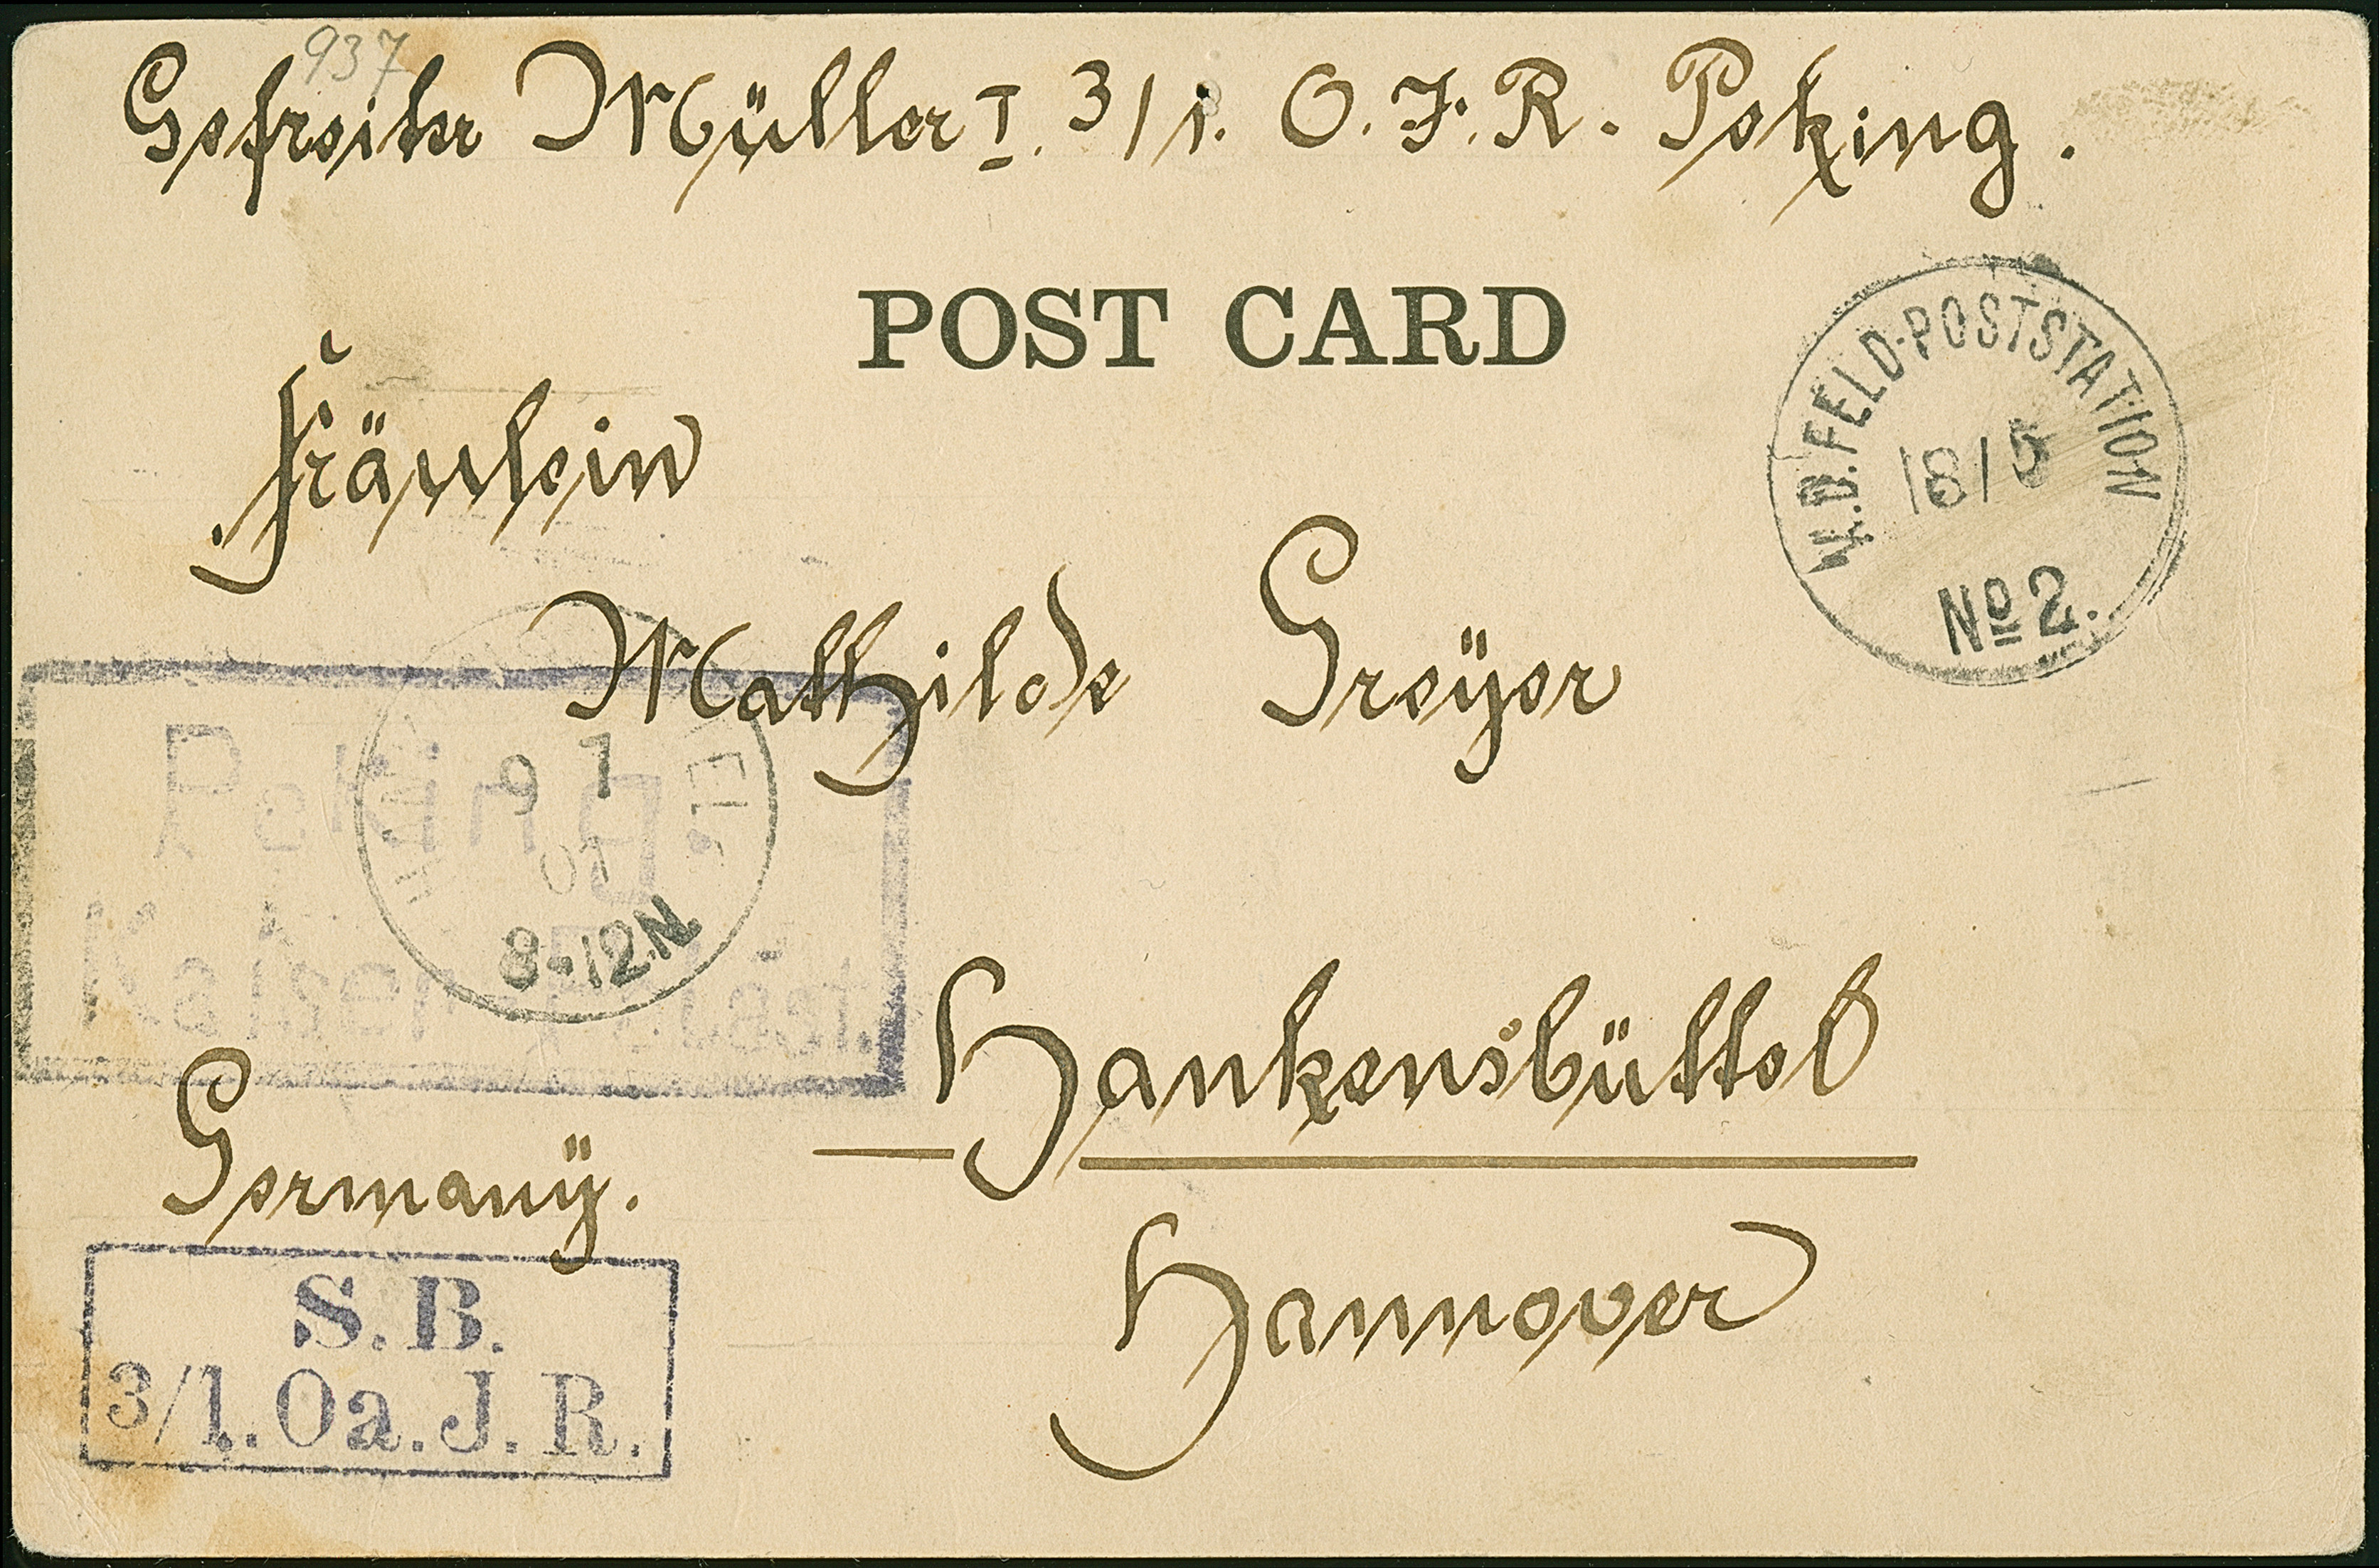 937
Gefreiter Müller I. 3/1. O.J.R. Peking.
POST CARD
K.D. FELD-POSTSTATION
18/5
No 2.
Fräulein
Mathilde Greÿer
Peking.
Kaiser-Palast.
9 7
01
8-12N.
Hankensbüttel
Germanÿ.
Hannover
S. B.
3/1. Oa. J. R.